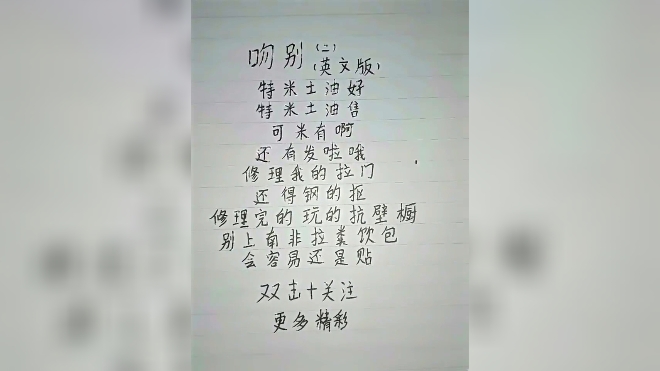 吻别(二)
(英文版)
特米土油好
特米土油售
可米有啊
还有发啦哦
修理我的拉门
还得钢的抠
修理完的玩的抗壁橱
别上南非拉粪饮包
会容易还是贴
双击十关注
更多精彩